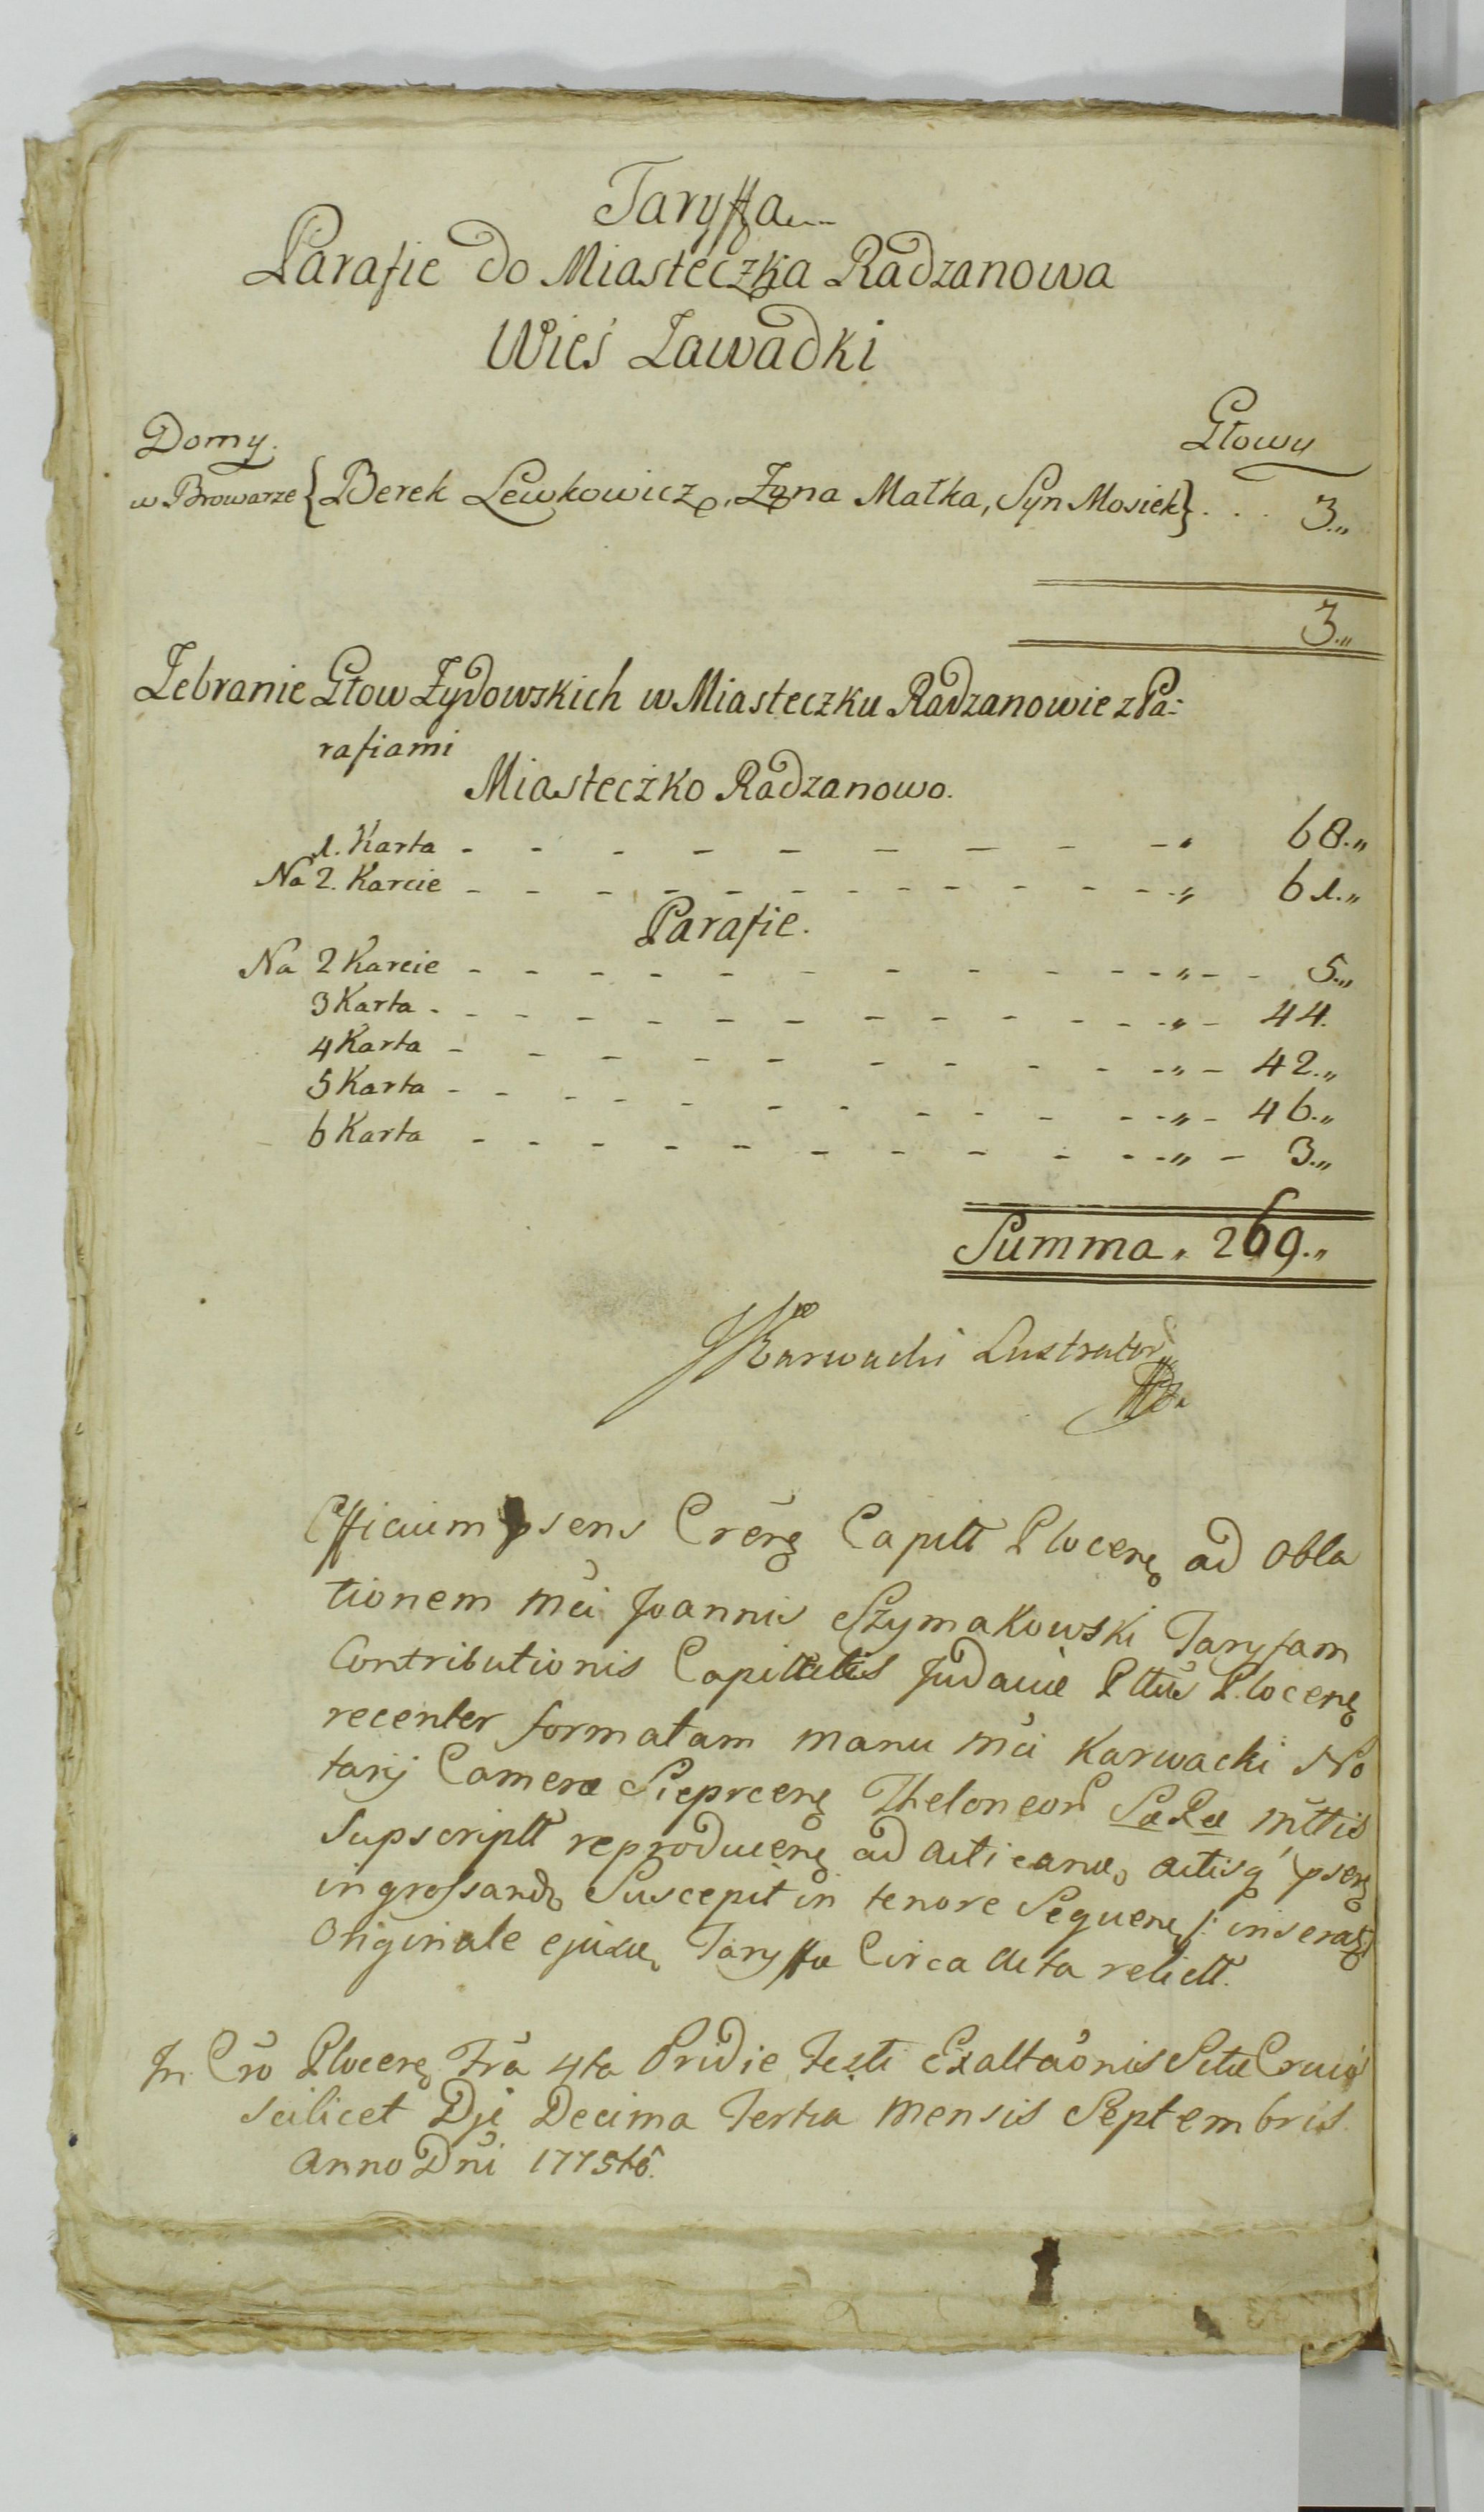 Taryffa
Parafie do Miasteczka Radzanowa
Wieś Zawadki
Domy. Głowy
w Browarze {Berek Lewkowicz, Żona Małka, Syn Mosiek} . . . 3.,,
3.,,
Zebranie Głow Żydowskich w Miasteczku Radzanowie z Pa-
rafiami
Miasteczko Radzanowo.
1. Karta - - - - - - - - - 68.,,
Na 2. Karcie - - - - - - - - - 61.,,
Parafie.
Na 2 Karcie - - - - - - - - - 5.,,
3 Karta - - - - - - - - - 44.
4 Karta - - - - - - - - - 42.,,
5 Karta - - - - - - - - - 46.,,
6 Karta - - - - - - - - - 3.,,
Summa ,, 269.,,
Karwacki Lustrator
Officium psens Crenę Capitt Plocenę ad obla
tionem Mci Joannis Szymakowski Taryfam
Contributionis Capitatis Judaicæ Pttus Plocenę
recenter formatam manu Mci Karwacki No
tarij Camera Sieprcenę Theloneor S R Mttis
Supscriptt reproducenę ad acticanđ, actisq psenę
ingrossanđ Suscepit in tenore Sequenę /: inseratę
Originale ejusđ Taryffæ Circa acta relictt.
In Cro Plocenę Fra 4ta Pridie Festi Exaltaonis Sctæ Crucis
scilicet Die Decima Tertia Mensis Septembris
Anno Dni 1775to.